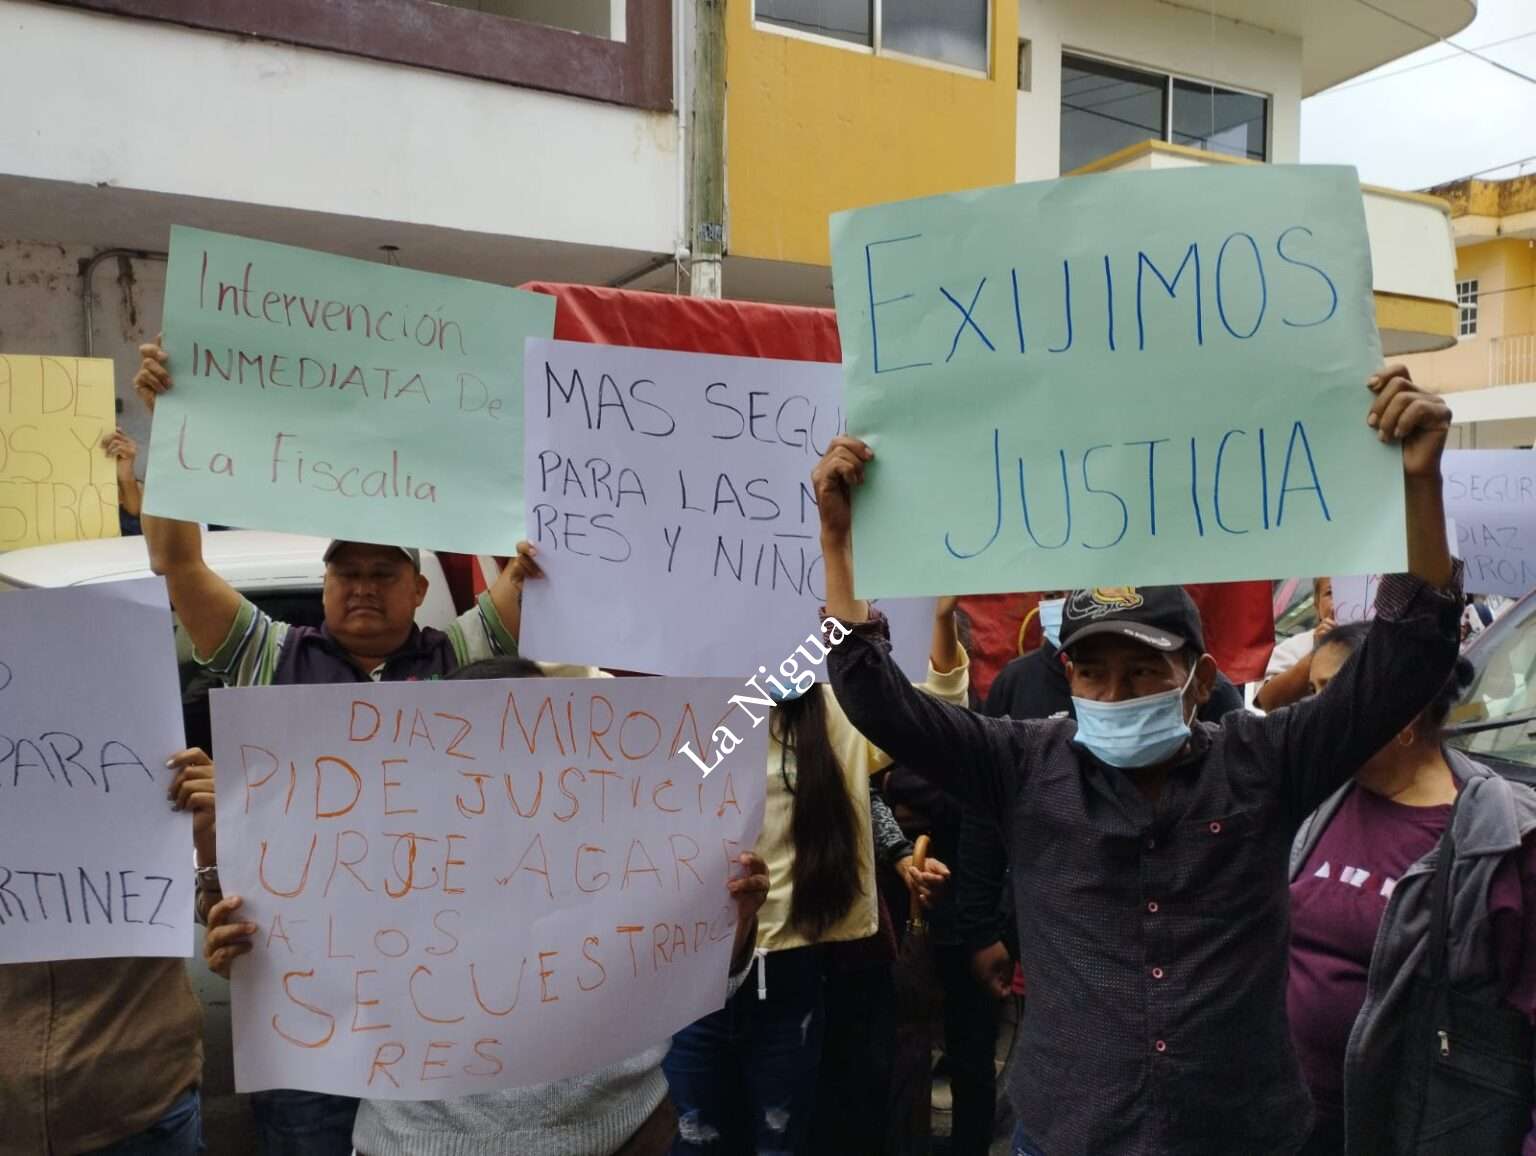 Intervención
INMEDIATA De
La Fiscalia
MAS
PARA LAS
RES Y
EXIJIMOS
JUSTICIA
DE
Y
SEGUR
DIAZ
MIRON
PARA
MARTINEZ
DIAZ MIRON
PIDE JUSTICIA
URJE AGARE
A LOS
SECUESTRADO
RES
La Nigua